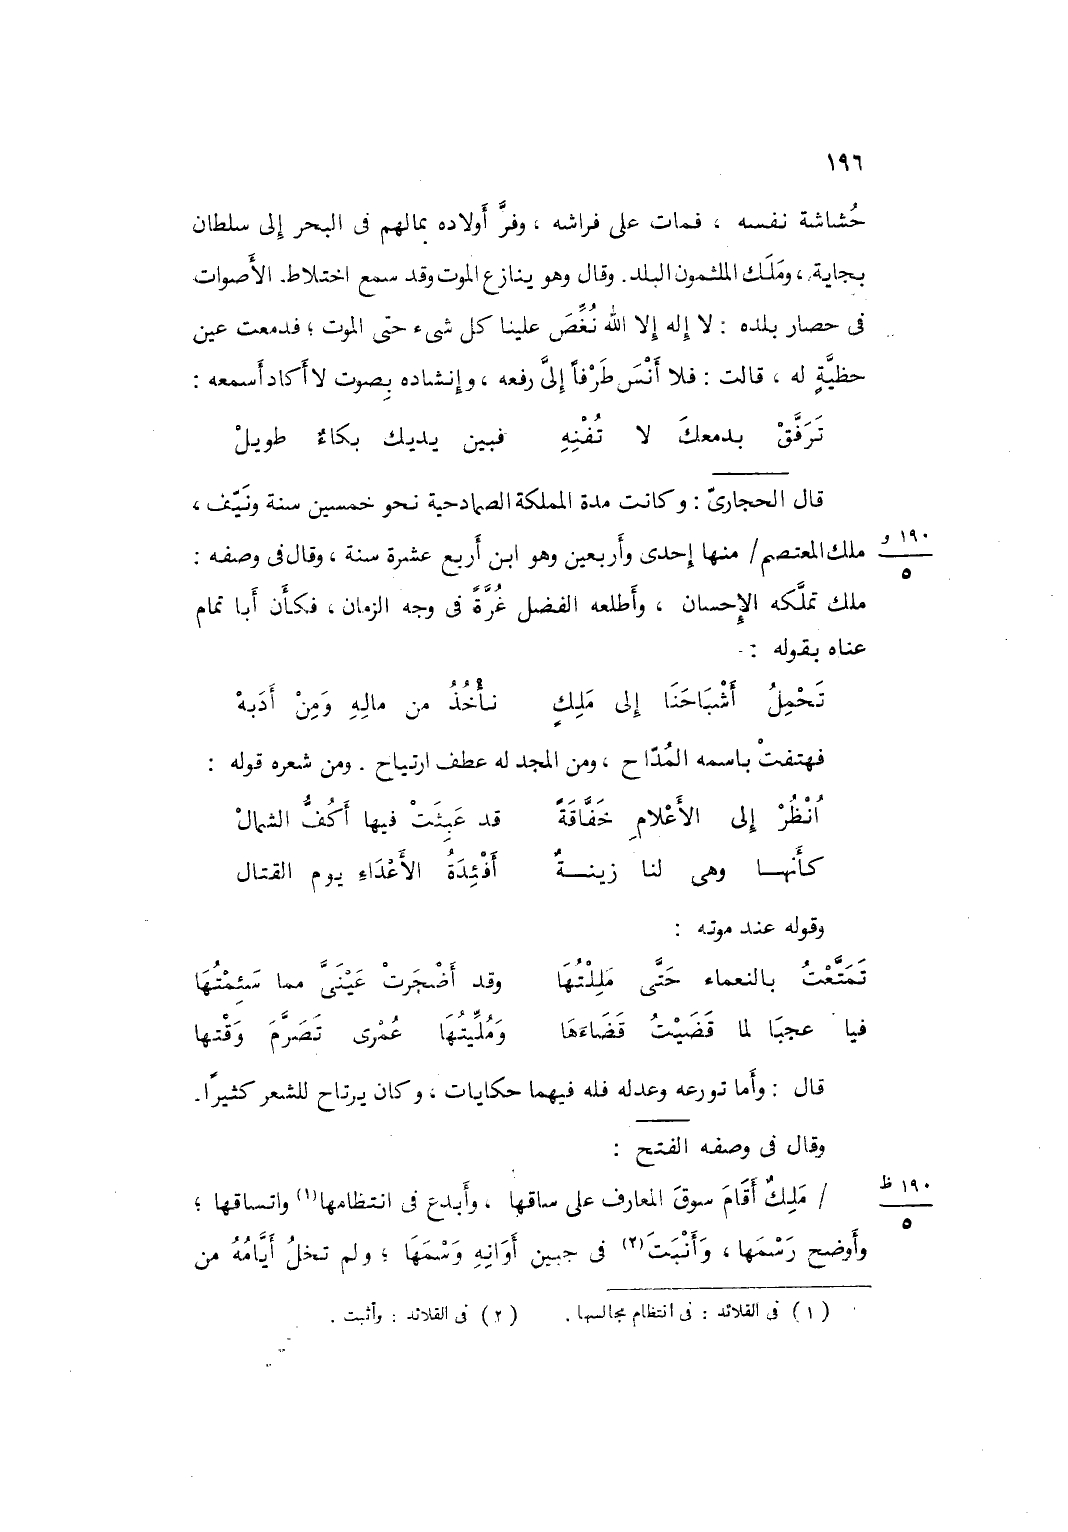 ١٩٦
حُشاشة نفسه ، فمات على فراشه ، وفرَّ أَولاده بمالهم فى البحر إِلى سلطان
بجاية ، ومَلَك الملثمون البلد. وقال وهو ينازع الموت وقد سمع اختلاط الأَصوات
فى حصار بلده : لا إِله إِلا الله نُغِّصَ علينا كل شىء حتى الموت ؛ فدمعت عين
حظيَّةٍ له ، قالت : فلا أَنْسَ طَرْفاً إِلىَّ رفعه ، وإنشاده بِصوت لا أكاد أسمعه :
تَرَفَّقْ بدمعكَ لا تُفْنِهِ فبين يديك بكاءٌ طويلْ
قال الحجارىّ : وكانت مدة المملكة الصمادحية نحو خمسين سنة ونَيّف ،
١٩٠ و
٥
ملك المعتصم / منها إِحدى وأَربعين وهو ابن أَربع عشرة سنة ، وقال فى وصفه :
ملك تملَّكه الإِحسان ، وأَطلعه الفضل غُرَّةً فى وجه الزمان ، فكأَن أَبا تمام
عناه بقوله :
تَحْمِلُ أَشْبَاحَنَا إِلى مَلِكٍ نأْخُذُ من مالِهِ وَمِنْ أَدَبهْ
فهتفتْ باسمه المُدّاح ، ومن المجد له عطف ارتياح . ومن شعره قوله :
اُنْظُرْ إِلى الأَعْلامِ خَفَّاقَةً قد عَبِثَتْ فيها أَكُفُّ الشمالْ
كأَنهـا وهى لنا زينـةٌ أَفْئِدَةُ الأَعْدَاءِ يوم القتال
وقوله عند موته :
تَمَتَّعْتُ بالنعماء حَتَّى مَلِلْتُهَا وقد أَضْجَرتْ عَيْنَىَّ مما سَئِمْتُهَا
فيا عجبًا لما قَضَيْتُ قَضَاءَهَا وَمُلِّيتُهَا عُمْرى تَصَرَّمَ وَقْتها
قال : وأَما تورعه وعدله فله فيهما حكايات ، وكان يرتاح للشعر كثيرًا.
وقال فى وصفه الفتح :
١٩٠ ظ
٥
/ مَلِكٌ أَقَامَ سوقَ المعارف على ساقها ، وأَبدع فى انتظامها(١) واتساقها ؛
وأَوضح رَسْمَها ، وَأَنْبَتَ(٢) فى جبين أَوَانِهِ وَسْمَهَا ؛ ولم تخلُ أَيَّامُهُ من
(١) فى القلائد : فى انتظام مجالسها . (٢) فى القلائد : وأثبت .